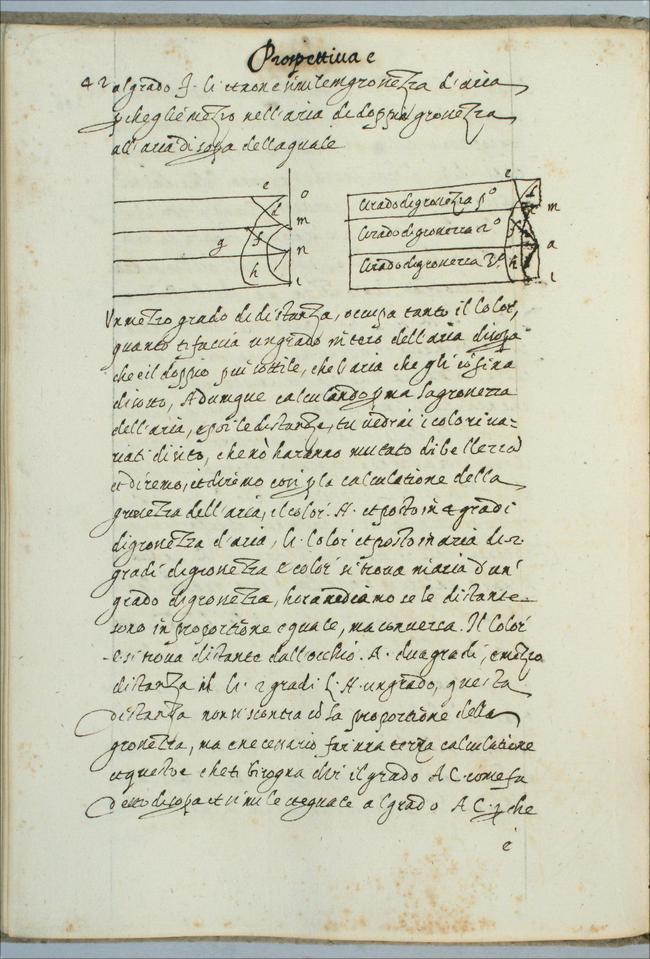 Prospettiua e
42 al grado f. li et non e simil em gronezza d'aria
p che gliè mezzo nell'aria di doppia gronezza
all'aria di sopa della quale
e
d
o
m
g
f
n
h
i
e
Grado di gronezza p.º
d
m
Grado di gronezza 2º
f
a
Grado di gronezza 3º
h
i
Vn mezzo grado di distanza, occupa tanto il color,
quanto ti faccia un grado intero dell'aria di sopa
che è il doppio piu sottile, che l'aria che gli cosina
di sotto, Adumque calculando p.ma la gronezza
dell'aria, e poi le distanze, tu uedrai i colori ua=
riati di sito, che nò haranno mutato di bellezza
et diremo, et diremo cosi p la calculatione della
gronezza dell'aria, il color. A. et posto in 4 gradi
di gronezza d'aria, il color et posto in aria di 2.
gradi di gronezza e color si troua in aria d'un'
grado di gronezza, hora uediamo se le distante
sono in proportione equale, ma conuersa. Il color
.e. si troua distante dall'occhio. A. dua gradi, e mezzo
distanza il li. 2 gradi l. A. un grado, questa
distanza non si scontra cò la proportione della
gronezza, ma e necesario far una terza calculatione
et quest'è che ti bisogna dir il grado AC. come fu
detto di sopa et simile et equale al grado AC. p che
è